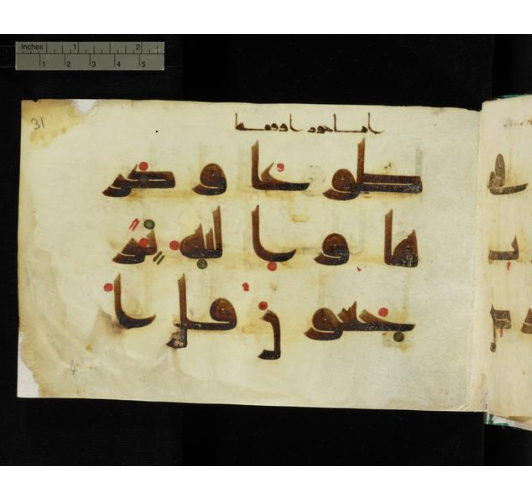 Inches 1 2
1 2 3 4 5
31
طوعا وكر
ها واليه تر
جعون قل ا